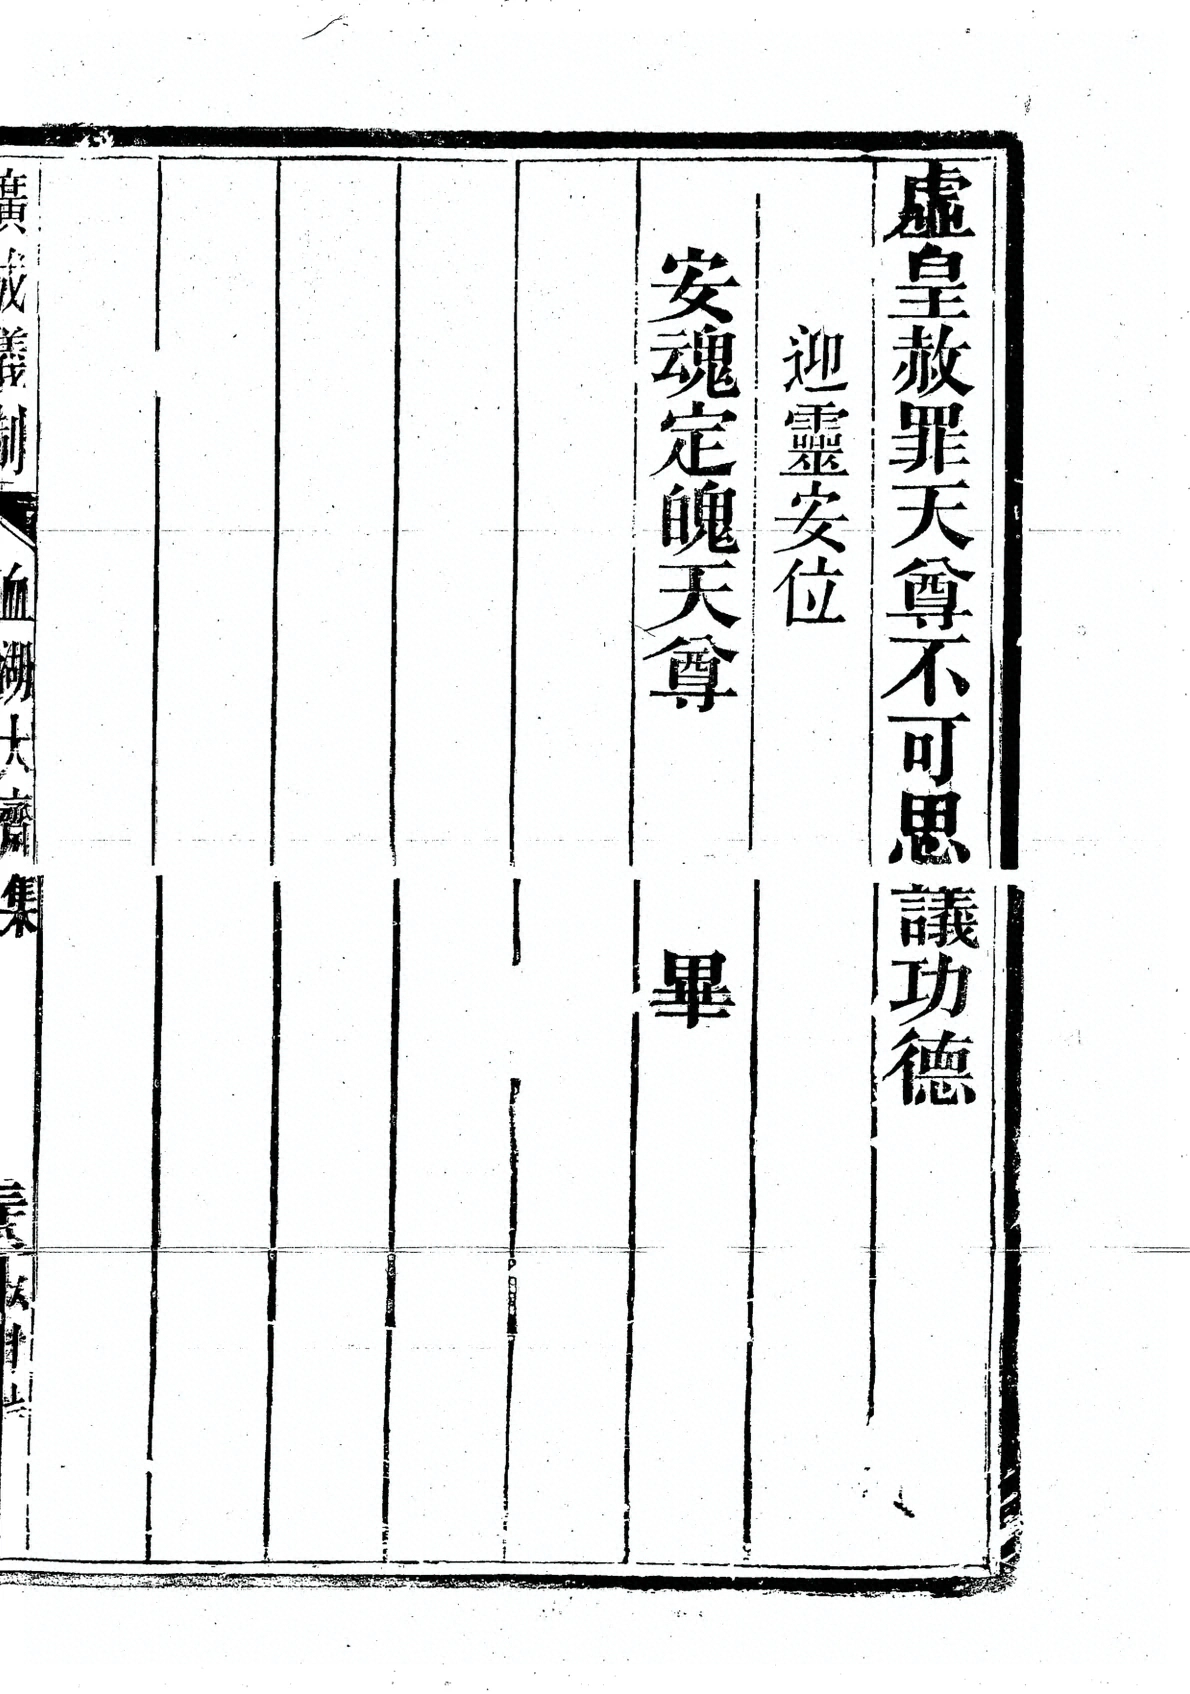 虛皇赦罪天尊不可思議功德
迎靈安位
安魂定魄天尊 畢
廣成儀制 血湖大齋集